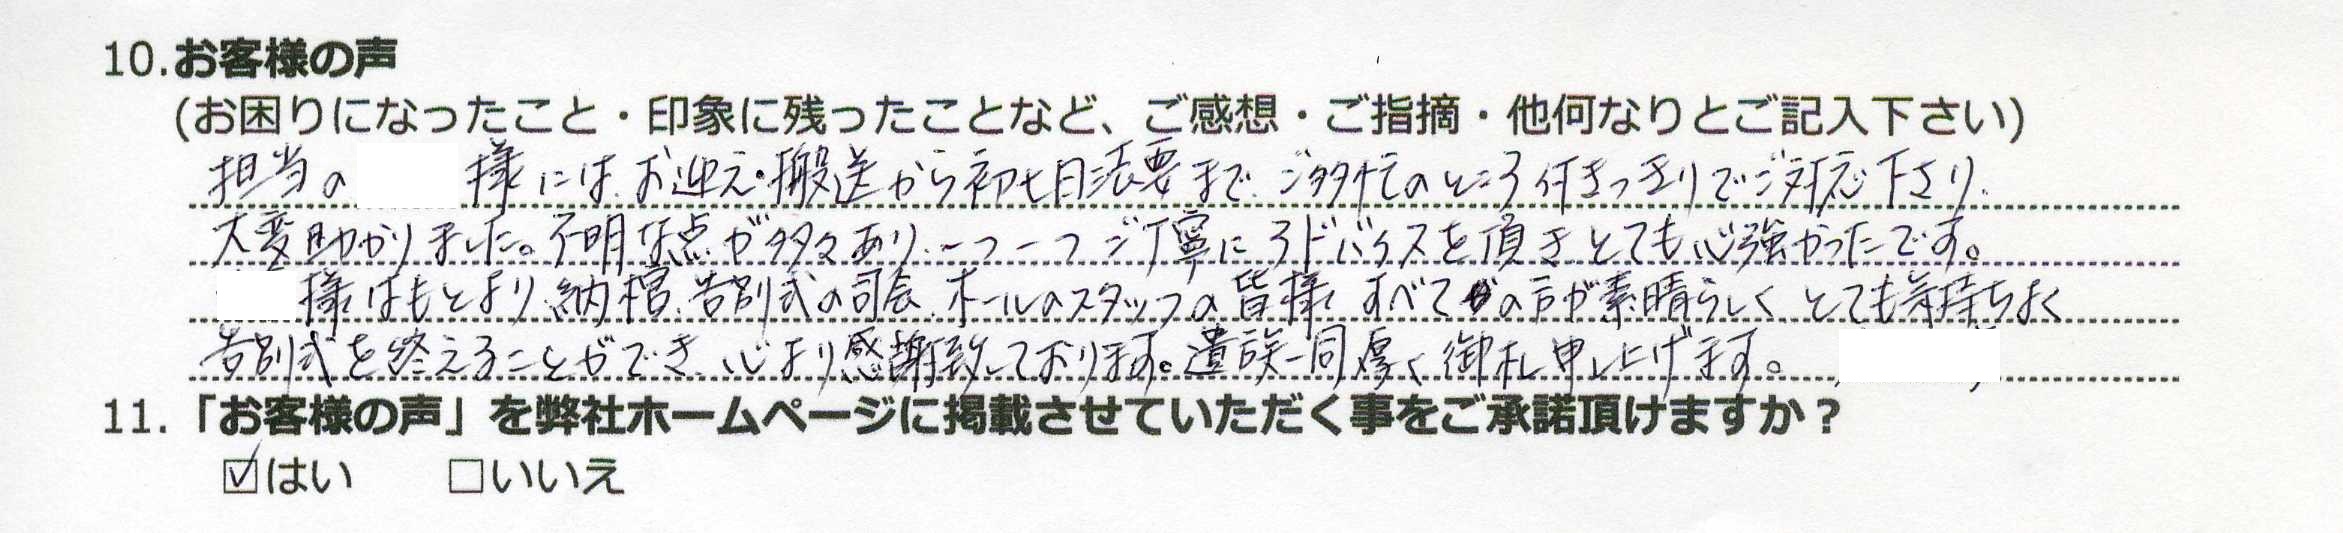 10.お客様の声
(お困りになったこと・印象に残ったことなど、ご感想・ご指摘・他何なりとご記入下さい)
担当の 様には、お迎え・搬送から初七日法要まで、ご多忙のところ付きっきりでご対応下さり、
大変助かりました。不明な点が多々あり、一つ一つご丁寧にアドバイスを頂きとても心強かったです。
様はもとより、納棺、告別式の司会、ホールのスタッフの皆様、すべての方が素晴らしく、とても気持ちよく
告別式を終えることができ、心より感謝致しております。遺族一同厚く御礼申し上げます。
11.「お客様の声」を弊社ホームページに掲載させていただく事をご承諾頂けますか？
☑はい □いいえ